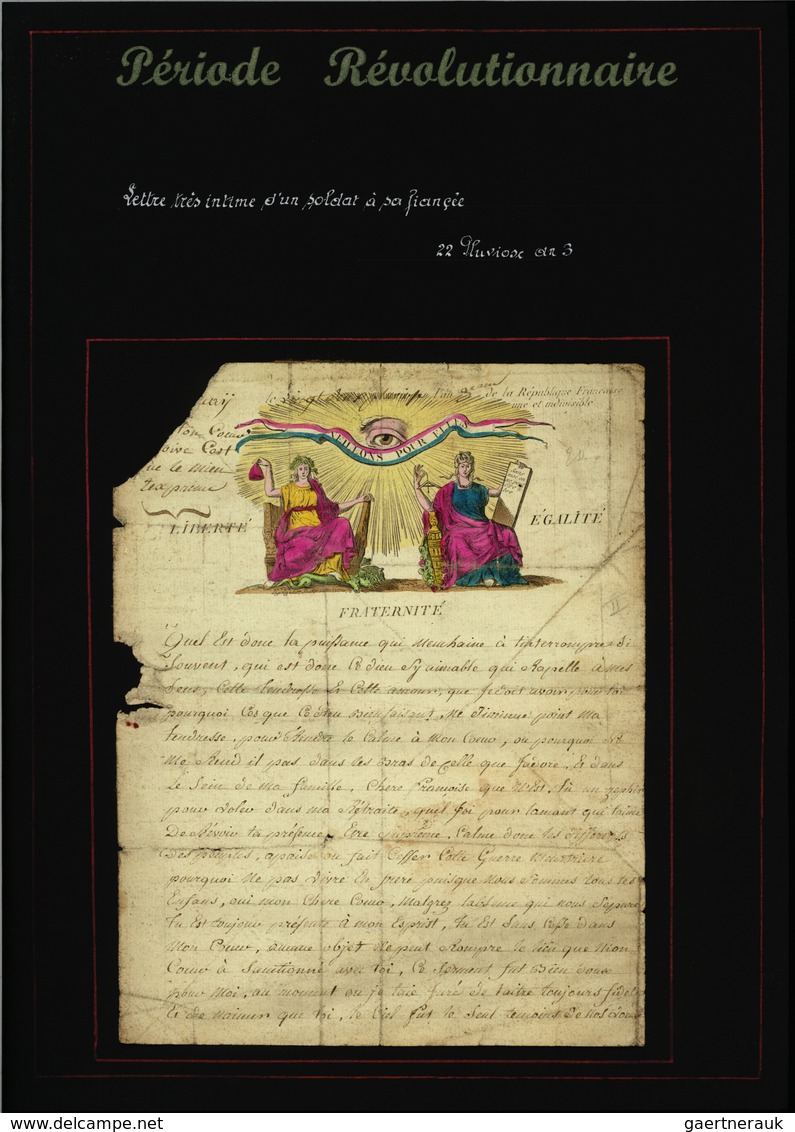 Période Révolutionnaire
Lettre très intime d'un soldat à sa fiancée
22 Pluviose an 3
l'an de la République Française
une et indivisible
ton Coeur
le mien
texprime
VEILLONS POUR ELLES
LIBERTÉ
ÉGALITÉ
FRATERNITÉ
II
Quel Est donc la puissance qui Menchaine à tinterrompre Si
Souvent, qui est donc Ce dieu Sy aimable qui Rapelle à mes
Sens, Cette tendresse Et Cette amour, que Je doit avoir pour toi
pourquoi Ces que Ce dieu Bienfaisant, Ne Diminue point ma
tendresse, pour Rendre le Calme à Mon Coeur, ou pourquoi Ne
Me Rend il pas dans les Bras de Celle que J'adore, Et dans
le Sein de ma famille, Chere Françoise que N'est, Tu un
pour Voler dans ma Rétraite, quel foi pour lamant qui taime
De Révoir ta présence, Etre Suprême, Calme donc les
Des peuples, apaise ou fait Cesser Cette Guerre Meurtriere
pourquoi Ne pas Vivre En frere puisque Nous Sommes tous tes
Enfans, oui mon Chere Coeur, Malgrez labsime qui nous Sépare
Tu Est toujour présente à mon Esprist, Tu Est Sans Cesse dans
Mon Coeur, aucune objet Ne peut Rompre le lieu que Mon
Coeur à Sanctionné avec toi, Ce Serment fut Bien doux
pour Moi, au moment ou je taie Juré de taitre toujours fidel
Et de naimer que toi, le Ciel fut le Seul temoins De nos
delcampe.net
gaertnerauk